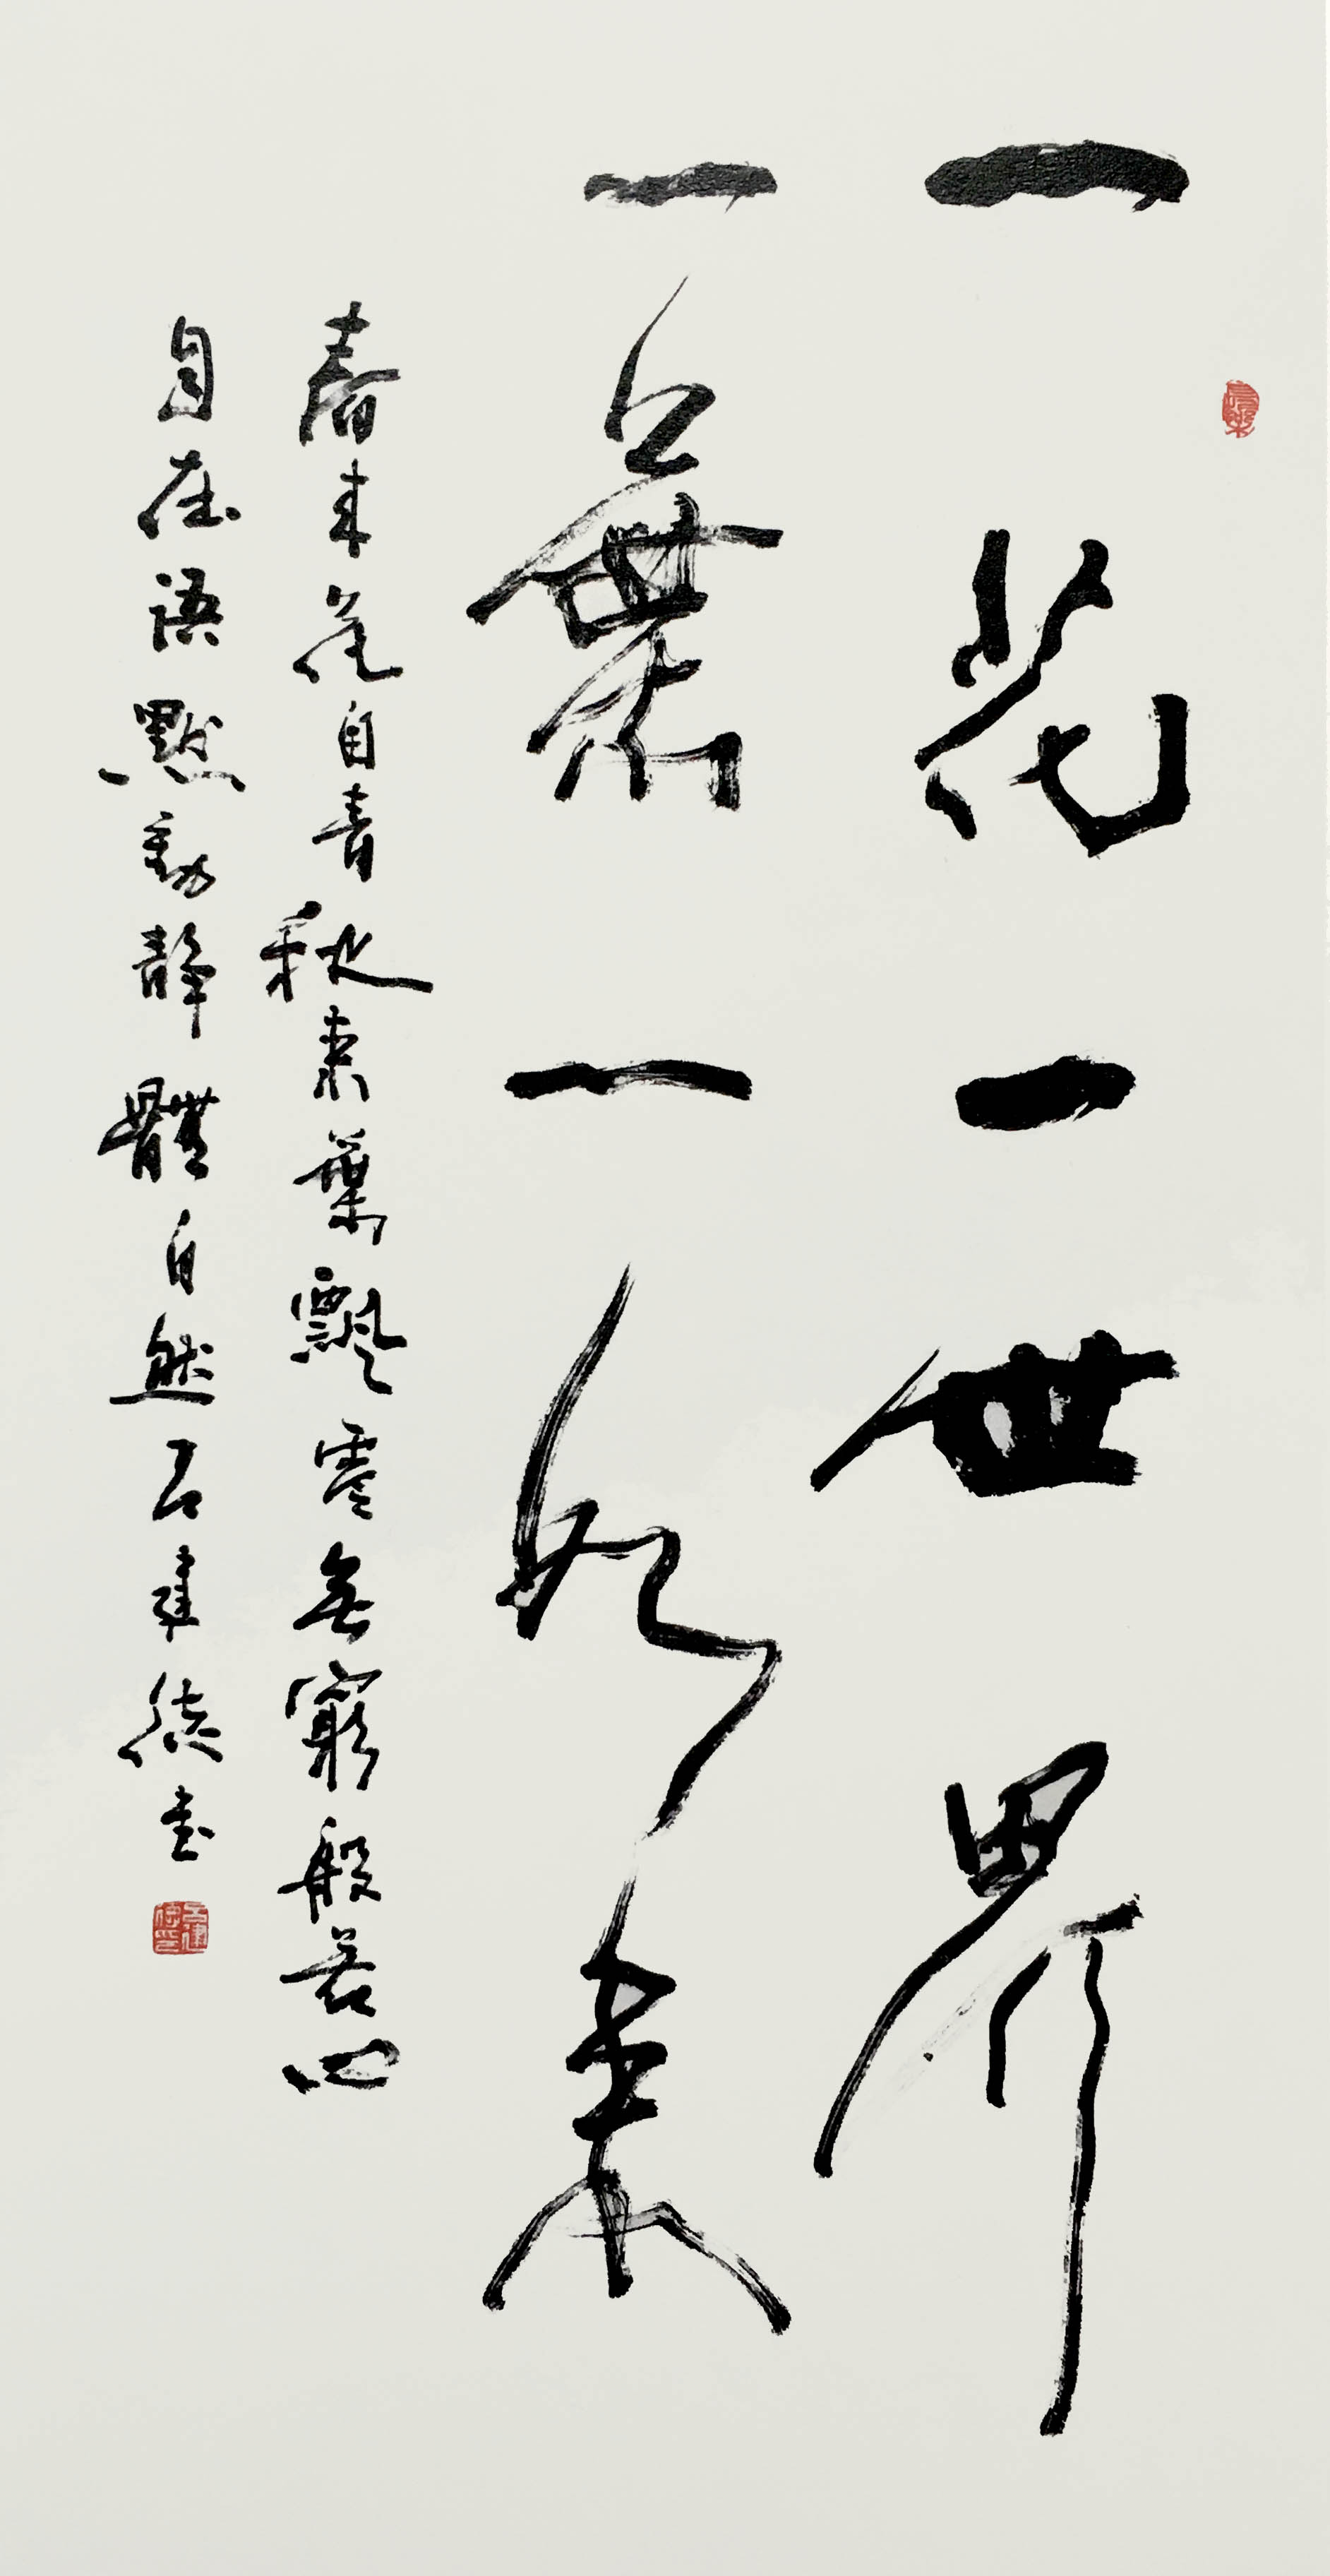 一花一世界
一葉一如来
春来花自青秋来葉飄零無窮般若心
自在語默動靜體自然石建德书